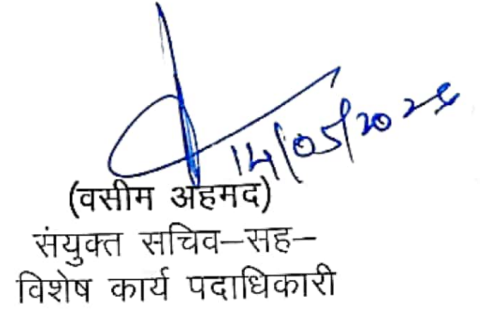 14/05/2025
(वसीम अहमद)
संयुक्त सचिव–सह–
विशेष कार्य पदाधिकारी